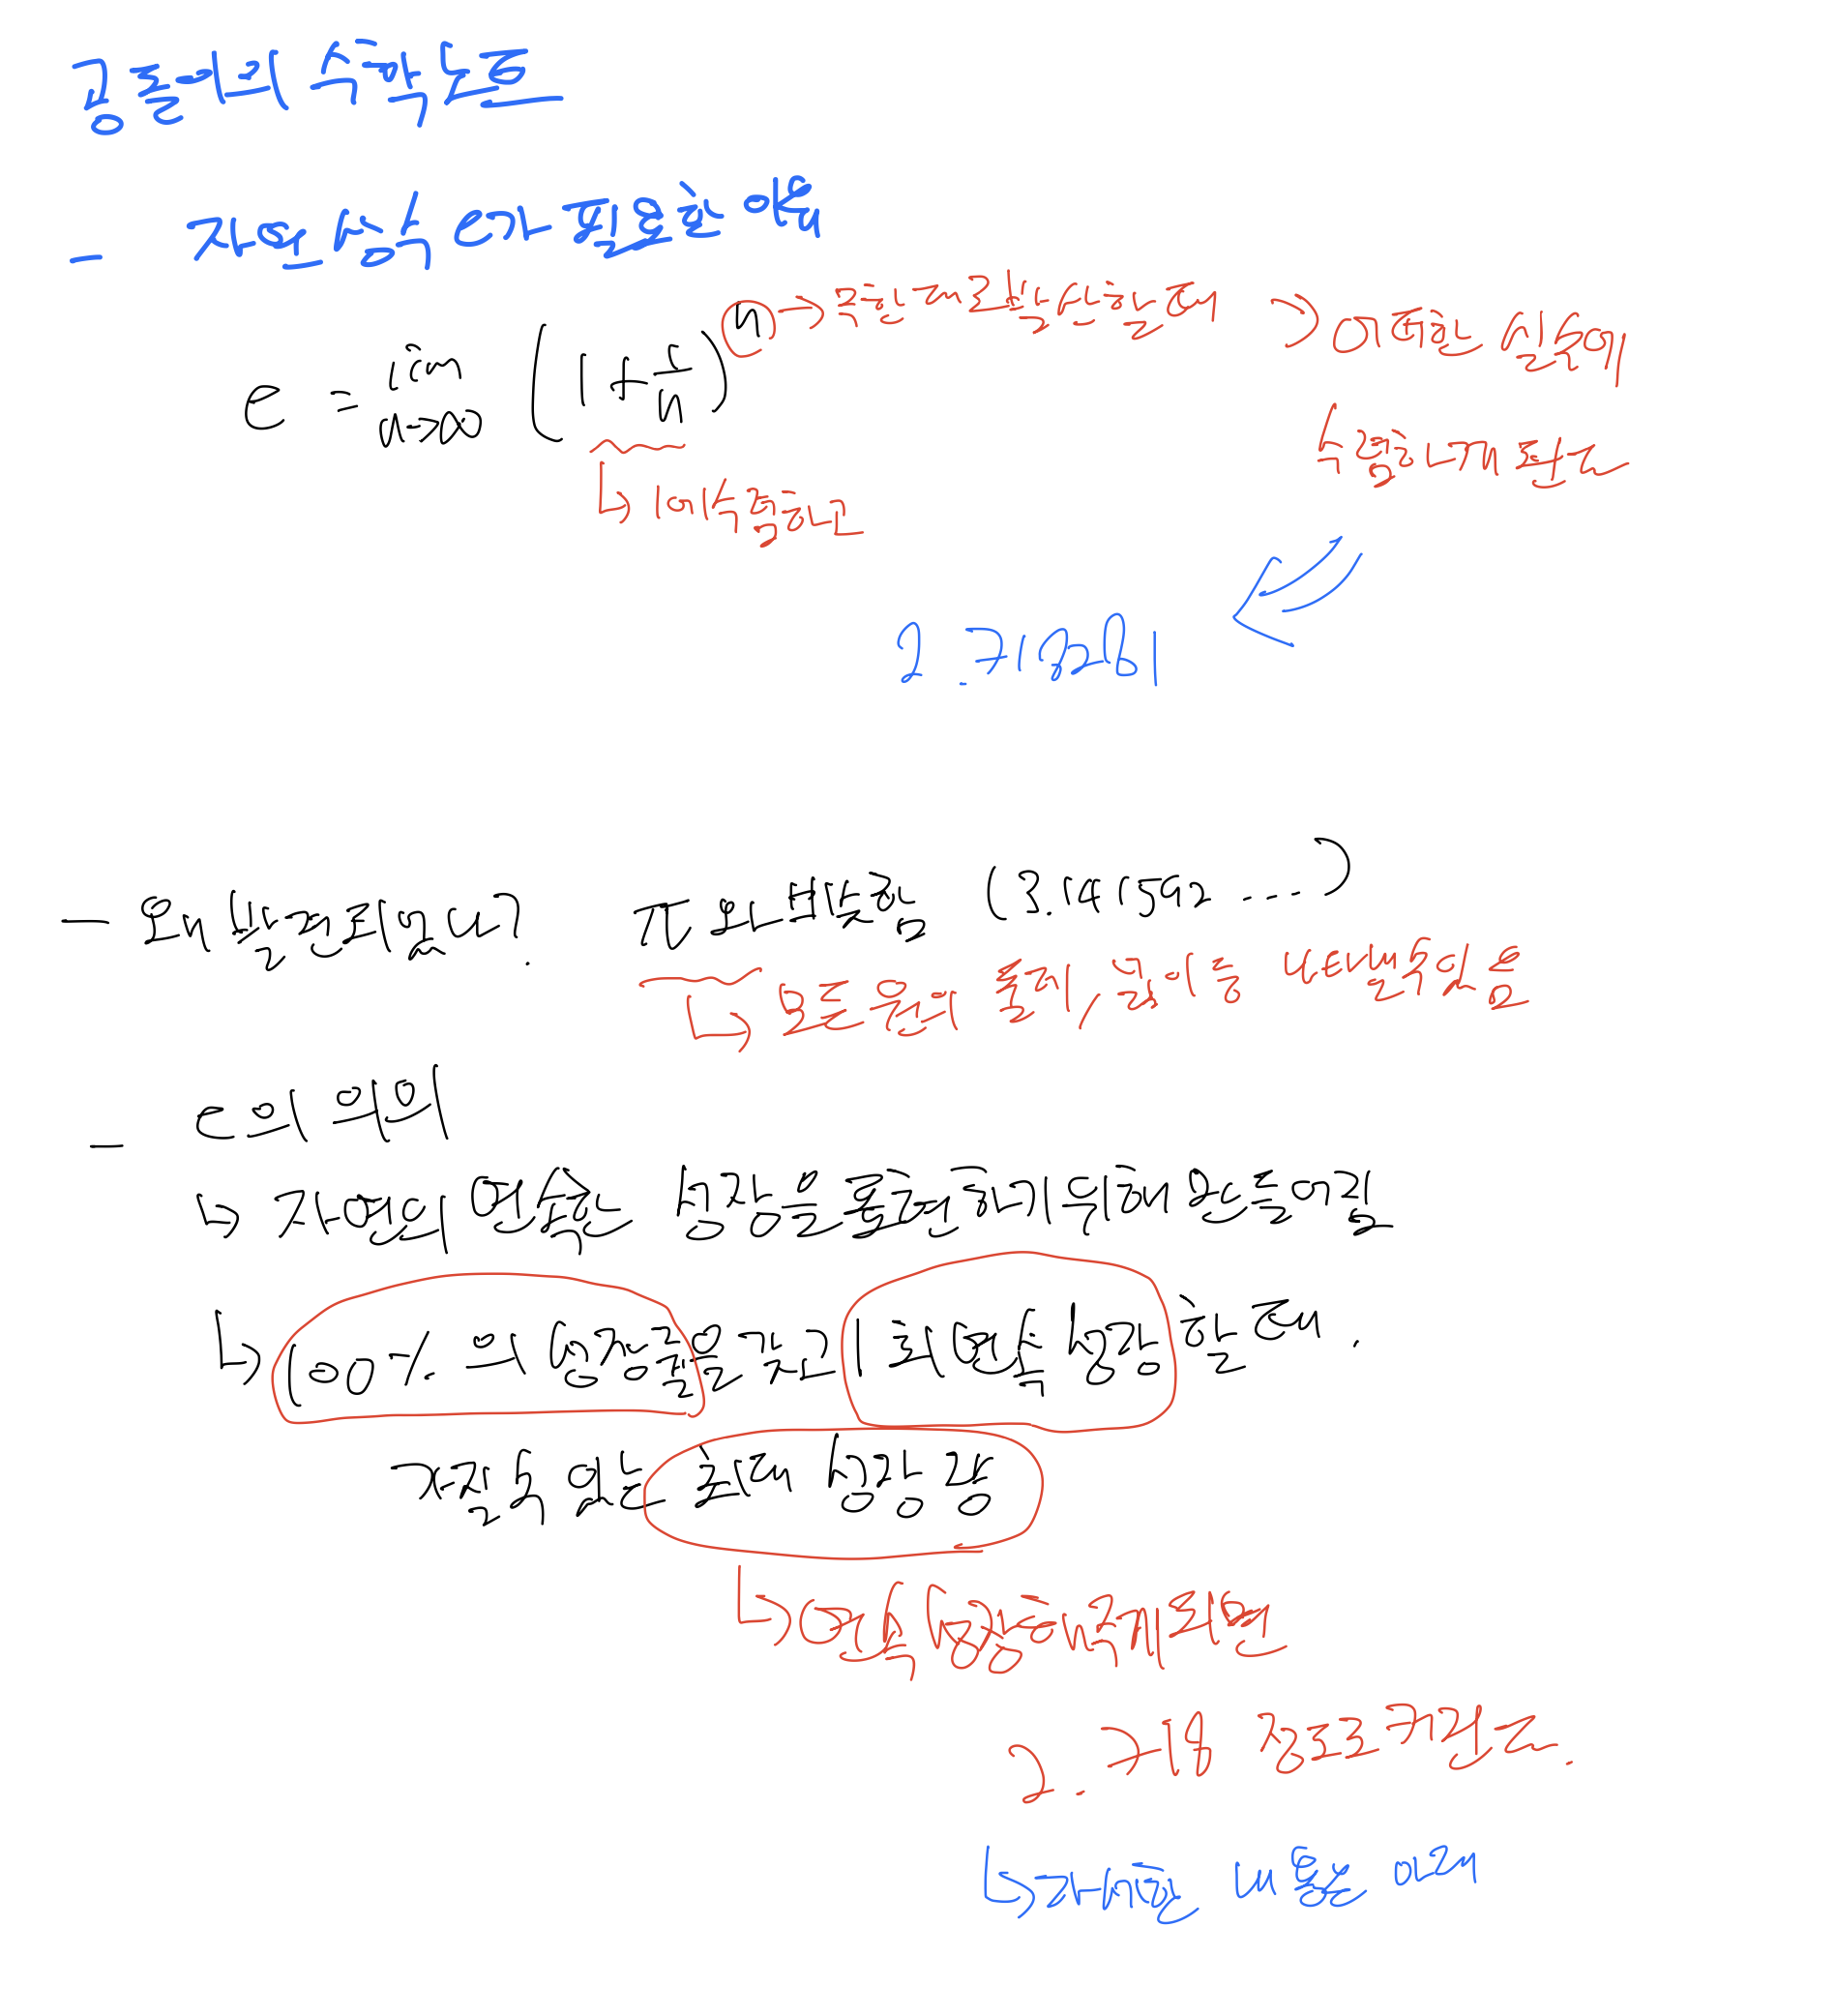 공돌이의 수학노트
- 자연상수 e가 필요한 이유
e = lim n→∞ (1 + 1/n)^n → 무한대로 발산할 때 > 어떠한 실수에
수렴하게 된다
↳ 1에 수렴하고
2.718281
- 왜 발견되었나? π와 비슷함 (3.141592...)
↳ 모든 원의 둘레, 넓이를 나타낼 수 있음
- e의 의미
↳ 자연의 연속 성장을 표현하기 위해 만들어짐
↳ 100%의 성장률을 갖고 1회 연속 성장할 때.
가질 수 있는 최대 성장량
↳ 연속 성장하게 되면
2.718 정도로 커진다.
↳ 자세한 내용은 아래